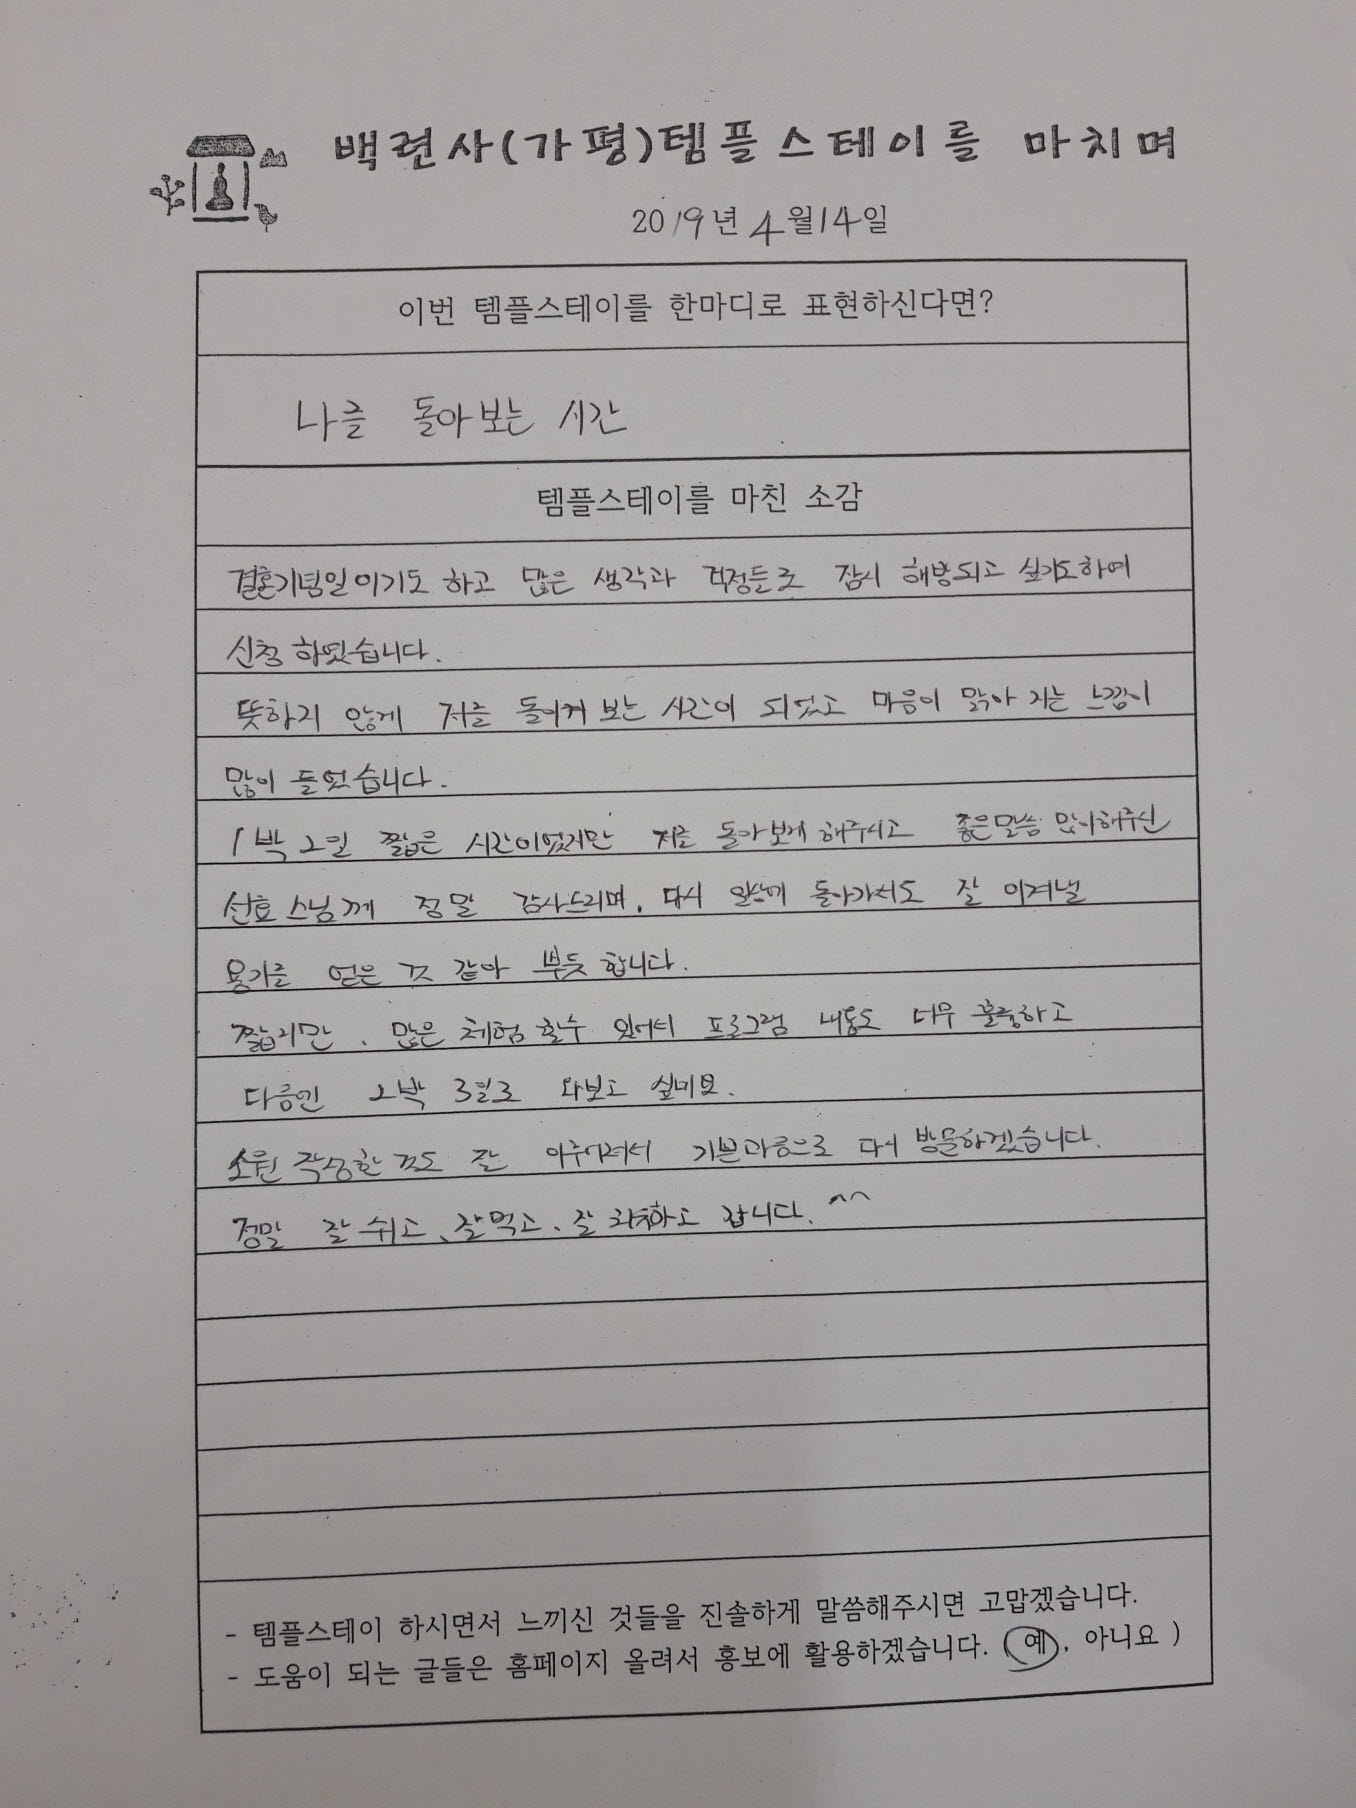 백련사(가평)템플스테이를 마치며
2019년 4월 14일
이번 템플스테이를 한마디로 표현하신다면?
나를 돌아보는 시간
템플스테이를 마친 소감
결혼기념일이기도 하고 많은 생각과 걱정들로 잠시 해방되고 싶기도하여
신청 하였습니다.
뜻하지 않게 저를 돌이켜 보는 시간이 되었고 마음이 맑아 지는 느낌이
많이 들었습니다.
1박 2일 짧은 시간이었지만 저를 돌아보게 해주시고 좋은말씀 많이해주신
선효스님께 정말 감사드리며, 다시 일상에 돌아가서도 잘 이겨낼
용기를 얻은 것 같아 뿌듯합니다.
짧지만, 많은 체험 할수 있어서 프로그램 내용도 너무 훌륭하고
다음엔 2박 3일로 와보고 싶네요.
소원 작성한 것도 잘 이루어져서 기쁜마음으로 다시 방문하겠습니다.
정말 잘 쉬고, 잘먹고, 잘 하고 갑니다. ^^
- 템플스테이 하시면서 느끼신 것들을 진솔하게 말씀해주시면 고맙겠습니다.
- 도움이 되는 글들은 홈페이지 올려서 홍보에 활용하겠습니다. (예, 아니요)